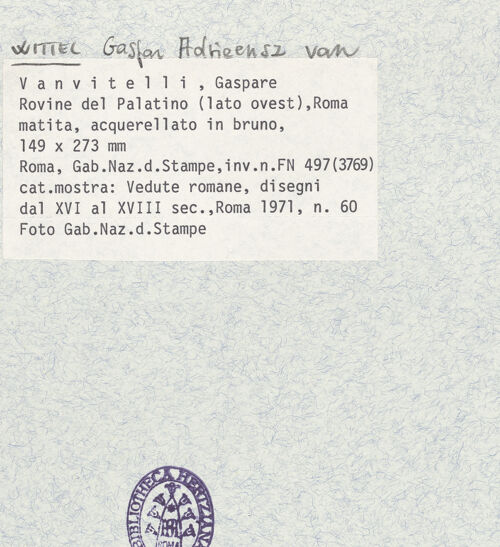 WITTEL Gaspar Adrieensz van
Vanvitelli, Gaspare
Rovine del Palatino (lato ovest),Roma
matita, acquerellato in bruno,
149 x 273 mm
Roma, Gab.Naz.d.Stampe,inv.n.FN 497(3769)
cat.mostra: Vedute romane, disegni
dal XVI al XVIII sec.,Roma 1971, n. 60
Foto Gab.Naz.d.Stampe
BIBLIOTHECA HERTZIANA
ROMA